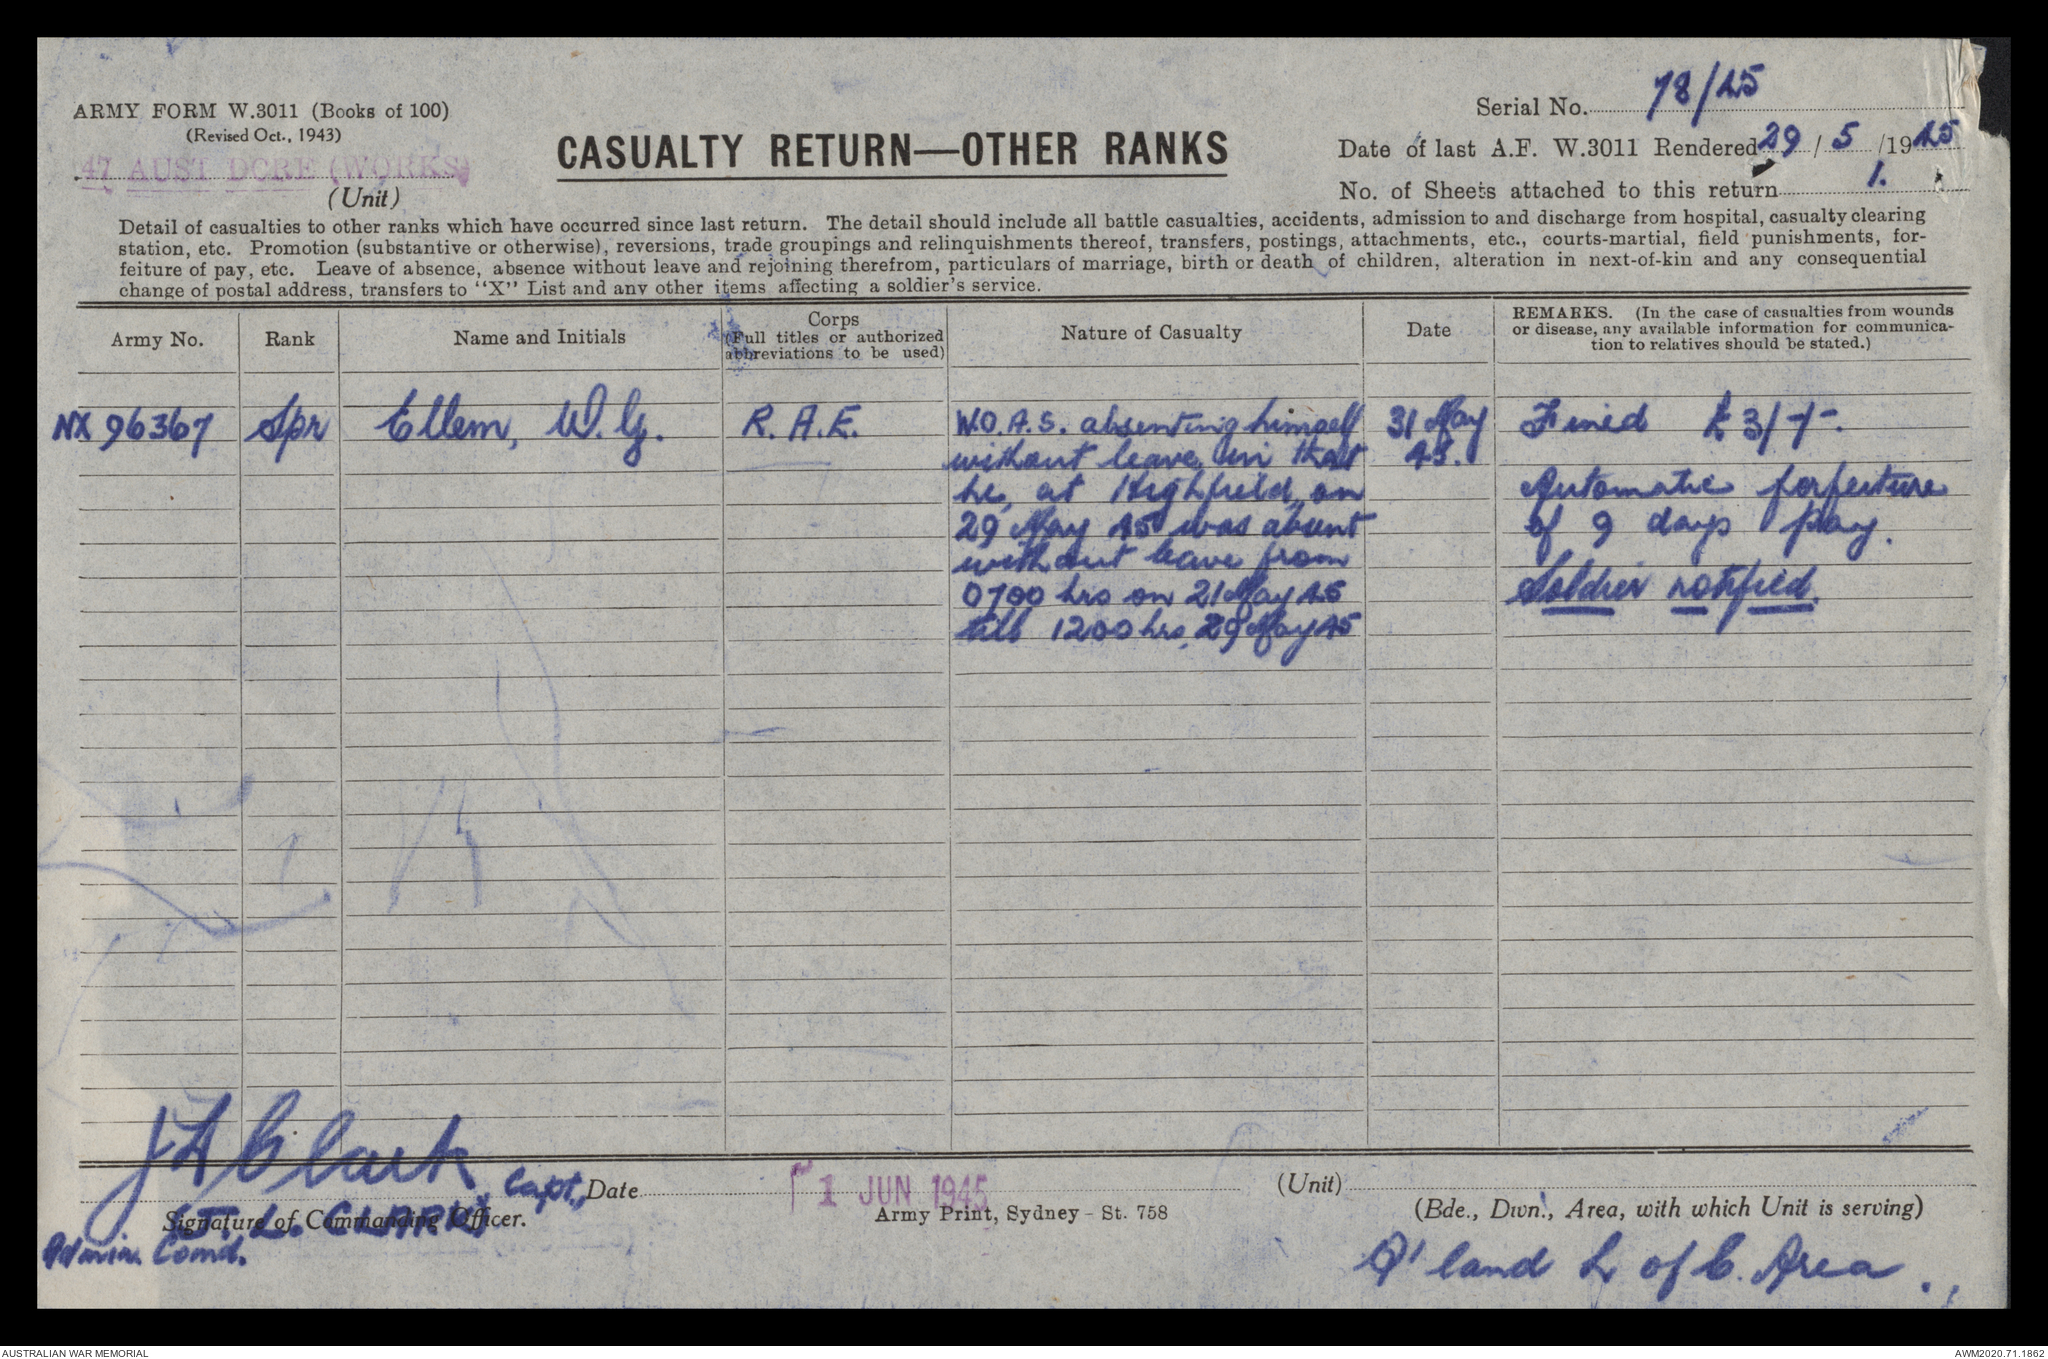 ARMY FORM W.3011 (Books of 100)
(Revised Oct., 1943)
47 AUST DCRE (WORKS)
(Unit)
CASUALTY RETURN—OTHER RANKS
Serial No. 78/45
Date of last A.F. W.3011 Rendered 29 / 5 /1945
No. of Sheets attached to this return 1.
Detail of casualties to other ranks which have occurred since last return. The detail should include all battle casualties, accidents, admission to and discharge from hospital, casualty clearing
station, etc. Promotion (substantive or otherwise), reversions, trade groupings and relinquishments thereof, transfers, postings, attachments, etc., courts-martial, field punishments, for-
feiture of pay, etc. Leave of absence, absence without leave and rejoining therefrom, particulars of marriage, birth or death of children, alteration in next-of-kin and any consequential
change of postal address, transfers to "X" List and any other items affecting a soldier's service.
Army No.
Rank
Name and Initials
Corps
(Full titles or authorized
abbreviations to be used)
Nature of Casualty
Date
REMARKS. (In the case of casualties from wounds
or disease, any available information for communica-
tion to relatives should be stated.)
NX 96367 Spr Ellem, W. G. R. A. E.
W.O.A.S. absenting himself
without leave, in that
he, at Highfield, on
29 May 45 was absent
without leave from
0700 hrs on 21 May 45
till 1200 hrs, 29 May 45
31 May
45.
Fined £3/-/-.
Automatic forfeiture
of 9 days pay.
Soldier notified.
J L Clark Capt.,
(J. L. CLARK)
Signature of Commanding Officer.
Admin. Comd.
Date 1 JUN 1945
Army Print, Sydney - St. 758
(Unit)
(Bde., Divn., Area, with which Unit is serving)
Q'land L of C. Area.
AUSTRALIAN WAR MEMORIAL
AWM2020.71.1862